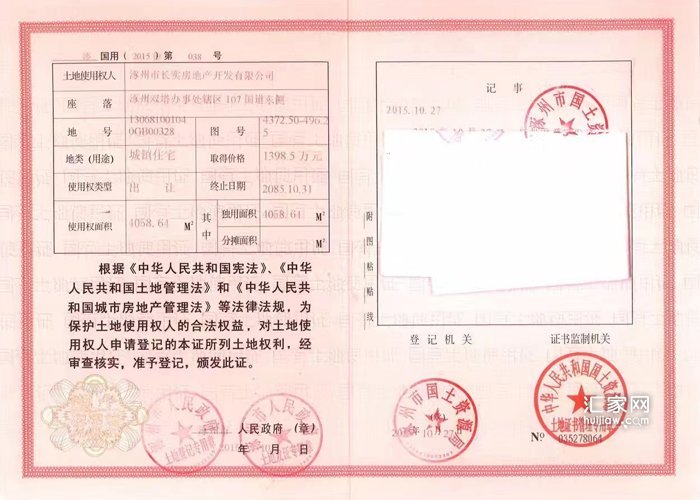 涿 国用（2015）第 038 号
土地使用权人 涿州市长实房地产开发有限公司
座 落 涿州双塔办事处辖区107国道东侧
地 号 130681001040GB00328 图 号 4372.50-496.25
地类（用途） 城镇住宅 取得价格 1398.5万元
使用权类型 出 让 终止日期 2085.10.31
使用权面积 4058.64 M² 其中 独用面积 4058.64 M²
分摊面积 M²
根据《中华人民共和国宪法》、《中华
人民共和国土地管理法》和《中华人民共
和国城市房地产管理法》等法律法规，为
保护土地使用权人的合法权益，对土地使
用权人申请登记的本证所列土地权利，经
审查核实，准予登记，颁发此证。
人民政府（章）
2015年10月 日
土地登记专用章
记 事
2015.10.27
涿州市国土资
附图粘贴线
登 记 机 关
证书监制机关
涿州市国土资源局
2015年10月27日
中华人民共和国国土资
土地证书管理专用章
Nº 035278064
汇家网
huijiaw.com